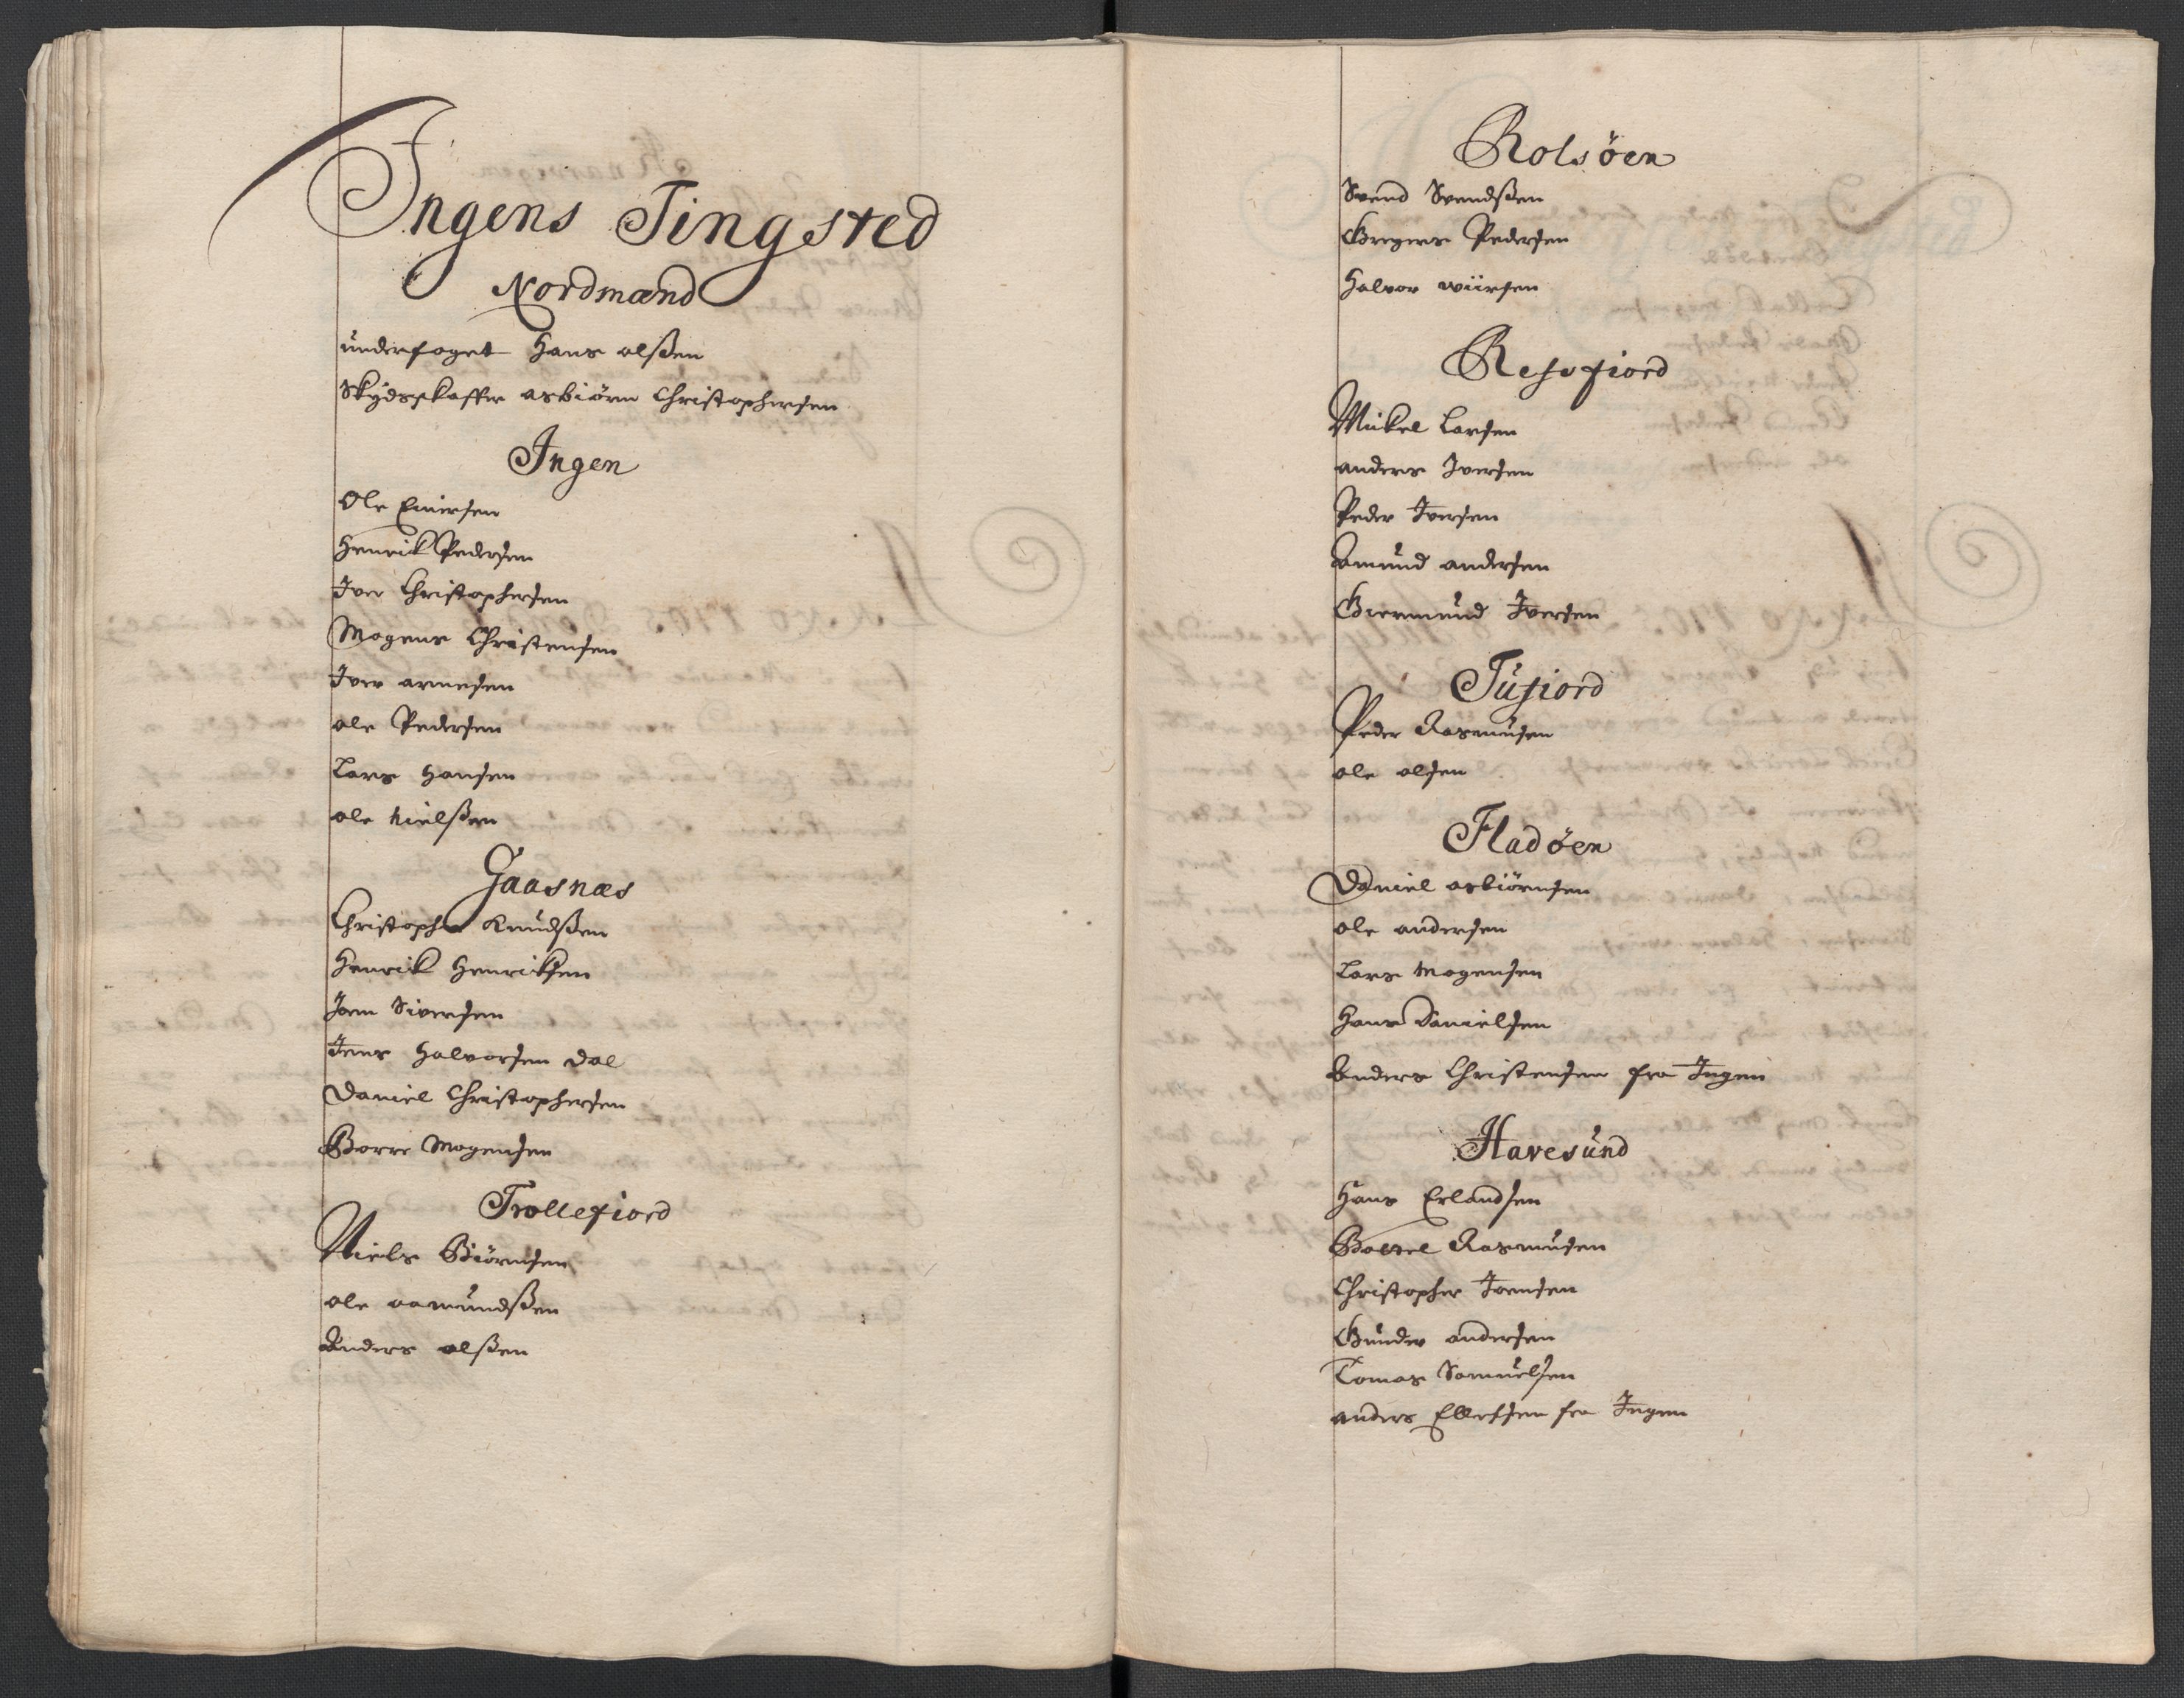 Ingens Tingsted
Nordmænd
underfoget Hans olssen
Skydsskaffer asbiörn Christophersen
Ingen
Ole Einersen
Henrik Pedersen
Iver Christophersen
Mogens Christensen
Iver arnesen
ole Pedersen
Lars Hansen
ole Nielssen
Gaasnæs
Christopher Knudssen
Henrik Henriksen
Joen Siversen
Jens Halvorsen Dal
Daniel Christophersen
Borre Mogensen
Trollefiord
Niels Biörnsen
ole aamundssen
Anders olssen
Rolsöen
Svend Svendssen
Gregers Pedersen
Halvor
Refsfiord
Mickel Larsen
anders Iversen
Peder Iversen
Amund andersen
Giermund Iversen
Tufiord
Peder Rasmusen
ole olsen
Fladöen
Daniel asbiörnsen
ole andersen
Lars Mogensen
Hans Danielsen
Anders Christensen fra Ingen
Havesund
Hans Erlandsen
Rasmusen
Christopher Joensen
Gunder andersen
Tomas Samuelsen
anders Ellertsen fra Ingen